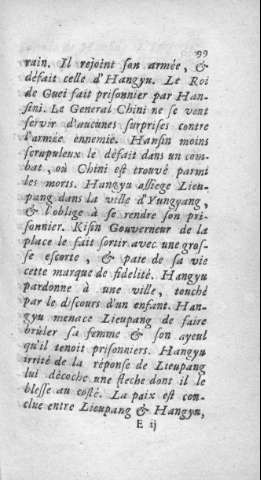 99
rain. Il rejoint son armée, &
défait celle d'Hangyu. Le Roi
de Guei fait prisonnier par Han-
sini. Le General Chini ne se veut
servir d'aucunes surprises contre
l'armée ennemie. Hansin moins
scrupuleux le défait dans un com-
bat, où Chini est trouvé parmi
les morts. Hangyu assiege Lieu-
pang dans la ville d'Yungyang,
& l'oblige à se rendre son pri-
sonnier. Kisin Gouverneur de la
place le fait sortir avec une gros-
se escorte, & paie de sa vie
cette marque de fidelité. Hangyu
pardonne à une ville, touché
par le discours d'un enfant. Han-
gyu menace Lieupang de faire
brûler sa femme & son ayeul
qu'il tenoit prisonniers. Hangyu
irrité de la réponse de Lieupang
lui décoche une fleche dont il le
blesse au costé. La paix est con-
clue entre Lieupang & Hangyu,
E ij